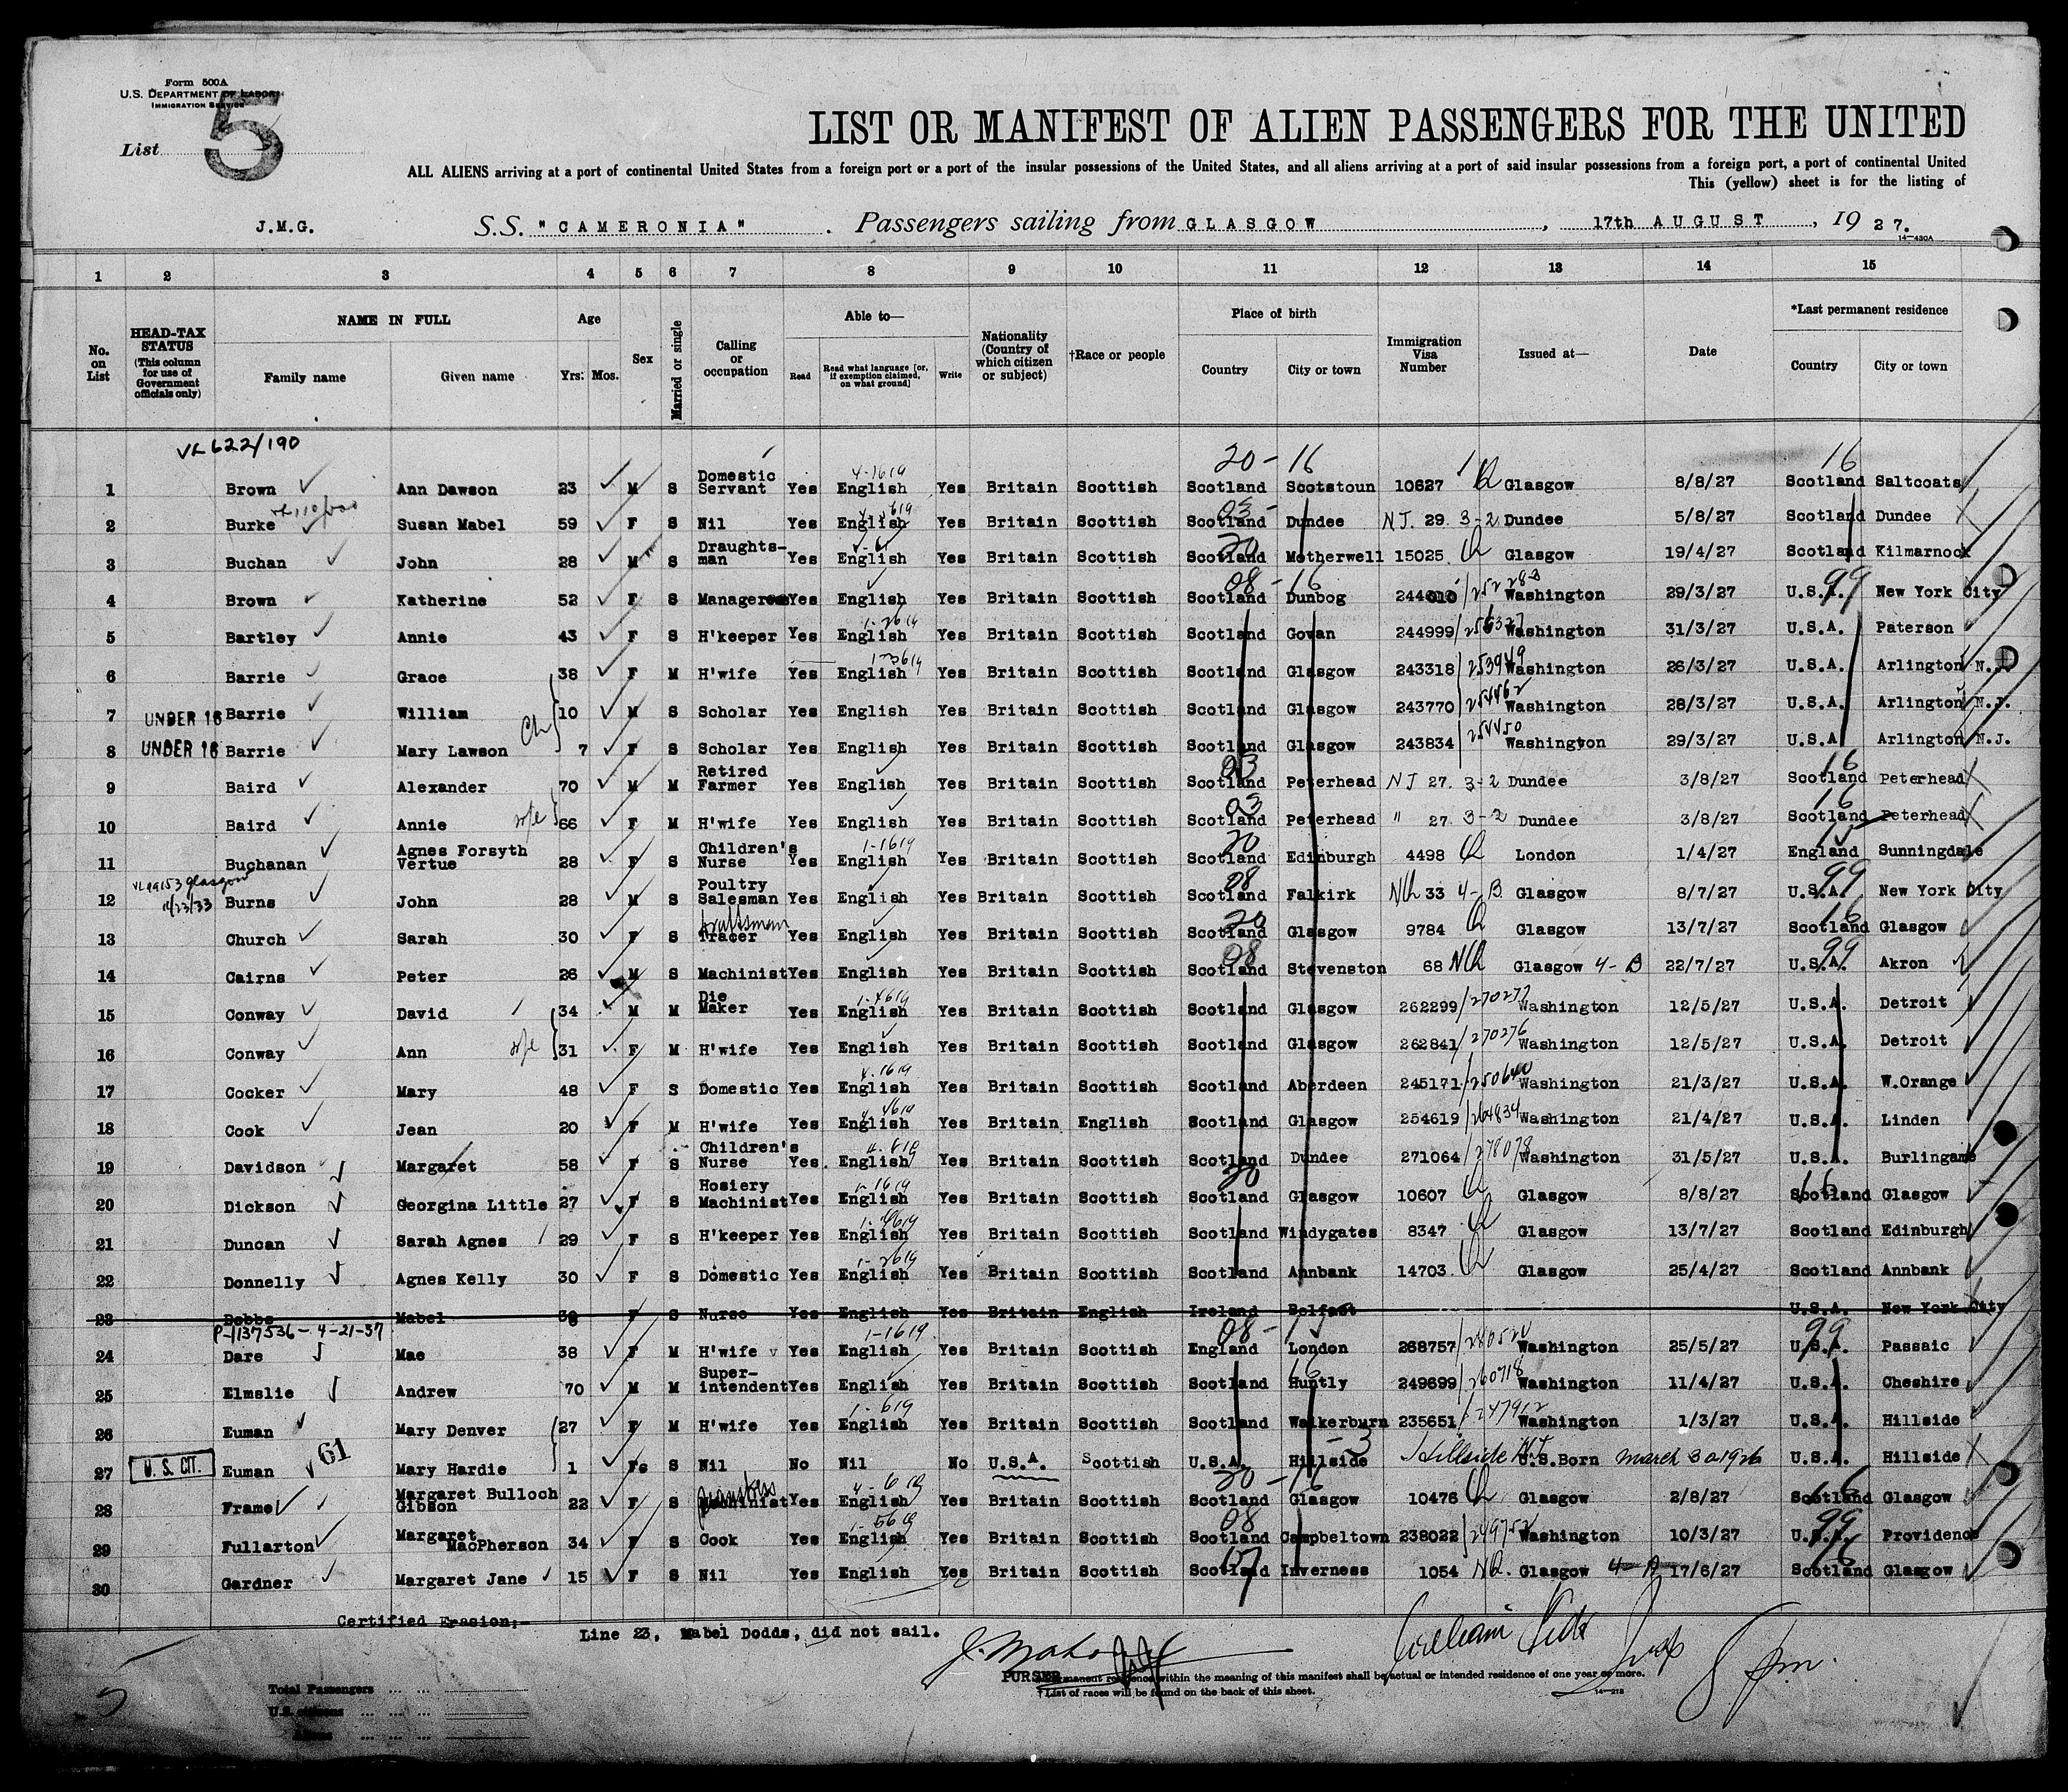 Form 500A
U.S. DEPARTMENT OF LABOR
IMMIGRATION SERVICE
List 5
LIST OR MANIFEST OF ALIEN PASSENGERS FOR THE UNITED
ALL ALIENS arriving at a port of continental United States from a foreign port or a port of the insular possessions of the United States, and all aliens arriving at a port of said insular possessions from a foreign port, a port of continental United
This (yellow) sheet is for the listing of
J.M.G. S.S. "CAMERONIA" . Passengers sailing from GLASGOW , 17th AUGUST , 19 27.
14—430A
1 2 3 4 5 6 7 8 9 10 11 12 13 14 15
No. on List
HEAD-TAX STATUS (This column for use of Government officials only)
NAME IN FULL
Family name Given name
Age
Yrs. Mos.
Sex
Married or single
Calling or occupation
Able to—
Read Read what language [or, if exemption claimed, on what ground] Write
Nationality (Country of which citizen or subject)
†Race or people
Place of birth
Country City or town
Immigration Visa Number
Issued at—
Date
*Last permanent residence
Country City or town
VL 622/190 20-16 16
1 Brown Ann Dawson 23 M S Domestic Servant Yes English Yes Britain Scottish Scotland Scotstoun 10627 Q Glasgow 8/8/27 Scotland Saltcoats
2 Burke Susan Mabel 59 F S Nil Yes English Yes Britain Scottish Scotland Dundee 29 3-2 Dundee 5/8/27 Scotland Dundee
3 Buchan John 28 M S Draughts-man Yes English Yes Britain Scottish Scotland Motherwell 15025 Q Glasgow 19/4/27 Scotland Kilmarnock
4 Brown Katherine 52 F S Yes English Yes Britain Scottish Scotland Dunbog 244010 /252283 Washington 29/3/27 U.S.A. New York City
5 Bartley Annie 43 F S H'keeper Yes English Yes Britain Scottish Scotland Govan 244999 Washington 31/3/27 U.S.A. Paterson
6 Barrie Grace 38 F M H'wife Yes English Yes Britain Scottish Scotland Glasgow 243318 /253949 Washington 26/3/27 U.S.A. Arlington N.J.
7 UNDER 16 Barrie William 10 M S Scholar Yes English Yes Britain Scottish Scotland Glasgow 243770 /254462 Washington 28/3/27 U.S.A. Arlington N.J.
8 UNDER 16 Barrie Mary Lawson Ch 7 F S Scholar Yes English Yes Britain Scottish Scotland Glasgow 243834 /254450 Washington 29/3/27 U.S.A Arlington N.J.
9 Baird Alexander 70 M M Retired Farmer Yes English Yes Britain Scottish Scotland Peterhead 27. 3-2 Dundee 3/8/27 Scotland Peterhead
10 Baird Annie wife 66 F M H'wife Yes English Yes Britain Scottish Scotland Peterhead " 27 3-2 Dundee 3/8/27 Scotland Peterhead
11 Buchanan Agnes Forsyth Vertue 28 F S Children's Nurse Yes English Yes Britain Scottish Scotland Edinburgh 4498 Q London 1/4/27 England Sunningdale
12 Burns John 28 M S Poultry Salesman Yes English Yes Britain Scottish Scotland Falkirk NQ 33 4-B Glasgow 8/7/27 U.S.A. New York City
13 Church Sarah 30 F S Tracer Yes English Yes Britain Scottish Scotland Glasgow 9784 Q Glasgow 13/7/27 Scotland Glasgow
14 Cairns Peter 26 M S Machinist Yes English Yes Britain Scottish Scotland Stevenston 68 NQ Glasgow 4-B 22/7/27 U.S.A. Akron
15 Conway David 34 M M Die Maker Yes English Yes Britain Scottish Scotland Glasgow 262299 /270277 Washington 12/5/27 U.S.A. Detroit
16 Conway Ann wife 31 F M H'wife Yes English Yes Britain Scottish Scotland Glasgow 262841 /270276 Washington 12/5/27 U.S.A. Detroit
17 Cocker Mary 48 F S Domestic Yes English Yes Britain Scottish Scotland Aberdeen 245171 /250640 Washington 21/3/27 U.S.A. W.Orange
18 Cook Jean 20 F M H'wife Yes English Yes Britain English Scotland Glasgow 254619 /264834 Washington 21/4/27 U.S.A. Linden
19 Davidson Margaret 58 F S Children's Nurse Yes English Yes Britain Scottish Scotland Dundee 271064 /278078 Washington 31/5/27 U.S.A. Burlingame
20 Dickson Georgina Little 27 F S Hosiery Machinist Yes English Yes Britain Scottish Scotland Glasgow 10607 Q Glasgow 8/8/27 Scotland Glasgow
21 Duncan Sarah Agnes 29 F S H'keeper Yes English Yes Britain Scottish Scotland Windygates 8347 Q Glasgow 13/7/27 Scotland Edinburgh
22 Donnelly Agnes Kelly 30 F S Domestic Yes English Yes Britain Scottish Scotland Annbank 14703 Q Glasgow 25/4/27 Scotland Annbank
23 Dobbs Mabel F S Nurse Yes English Yes Britain English Ireland Belfast U.S.A. New York City
P-1137536 - 4-21-37
24 Dare Mae 38 F M H'wife Yes English Yes Britain Scottish England London 268757 /280520 Washington 25/5/27 U.S.A. Passaic
25 Elmslie Andrew 70 M M Super-intendent Yes English Yes Britain Scottish Scotland Huntly 249699 /260718 Washington 11/4/27 U.S.A. Cheshire
26 Euman Mary Denver 27 F M H'wife Yes English Yes Britain Scottish Scotland Walkerburn 235651 /247912 Washington 1/3/27 U.S.A. Hillside
27 U.S. CIT. Euman 61 Mary Hardie 1 Fe S Nil No Nil No U.S.A. Scottish U.S.A. Hillside Hillside N.J. U.S.Born March 30 1926 U.S.A. Hillside
28 Frame Margaret Bulloch Gibson 22 F S Machinist Yes English Yes Britain Scottish Scotland Glasgow 10476 Q Glasgow 2/8/27 Scotland Glasgow
29 Fullarton Margaret MacPherson 34 F S Cook Yes English Yes Britain Scottish Scotland Campbeltown 238022 /249752 Washington 10/3/27 U.S.A. Providence
30 Gardner Margaret Jane 15 F S Nil Yes English Yes Britain Scottish Scotland Inverness 1054 NQ. Glasgow 4-A 17/6/27 Scotland Glasgow
Certified Erasion;-
Line 23, Mabel Dodds, did not sail.
PURSER
Permanent residence within the meaning of this manifest shall be actual or intended residence of one year or more.
† List of races will be found on the back of this sheet.
14—218
Total Passengers ... ...
U.S. citizens ... ... ...
Aliens ... ... ...